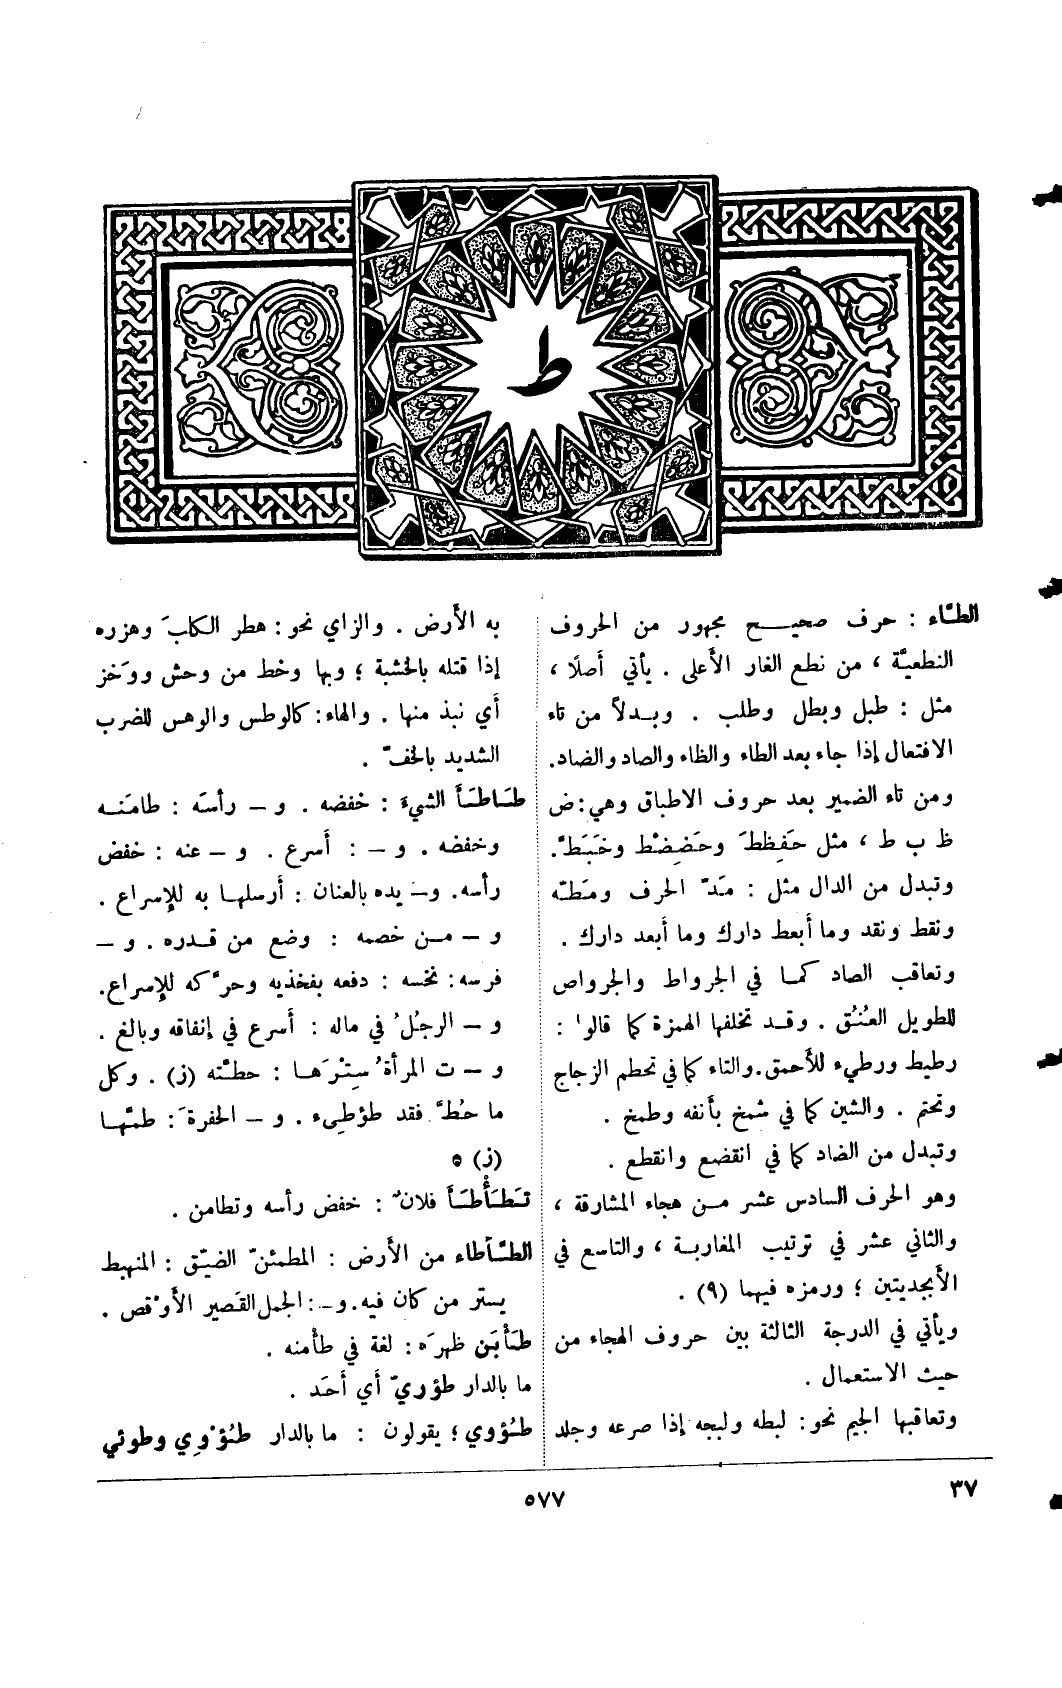 ط
الطَّاء : حرف صحيح مجهور من الحروف
النطعيَّة ، من نطع الغار الأعلى . يأتي أصلًا ،
مثل : طبل وبطل وطلب . وبدلاً من تاء
الافتعال إذا جاء بعد الطاء والظاء والصاد والضاد.
ومن تاء الضمير بعد حروف الاطباق وهي: ض
ظ ب ط ، مثل حَفِظطَ وحَضِضْط وخَبَطَّ.
وتبدل من الدال مثل : مَدّ الحرف ومَطّه
ونقط ونقد وما أبعط دارك وما أبعد دارك .
وتعاقب الصاد كما في الجرواط والجرواص
للطويل العُنُق . وقد تخلفها الهمزة كما قالوا :
رطيط ورطيء للأحمق.والتاء كما في تحطم الزجاج
وتحتم . والشين كما في شمخ بأنفه وطمخ .
وتبدل من الضاد كما في انقضع وانقطع .
وهو الحرف السادس عشر من هجاء المشارقة ،
والثاني عشر في ترتيب المغاربة ، والتاسع في
الأبجديتين ؛ ورمزه فيهما (٩) .
ويأتي في الدرجة الثالثة بين حروف الهجاء من
حيث الاستعمال .
وتعاقبها الجيم نحو: لبطه ولبجه إذا صرعه وجلد
به الأرض . والزاي نحو : هطر الكلبَ وهزره
إذا قتله بالخشبة ؛ وبها وخط من وحش ووَخز
أي نبذ منها . والهاء: كالوطس والوهس للضرب
الشديد بالخفّ .
طَاطَأَ الشيءَ : خفضه . و – رأسَه : طامَنه
وخفضه . و – : أسرع . و – عنه : خفض
رأسه. و – يده بالعنان : أرسلها به للإسراع .
و – من خصمه : وضع من قدره . و –
فرسه: نخسه : دفعه بفخذيه وحرَّكه للإسراع.
و – الرجُلُ في ماله : أسرع في إنفاقه وبالغ .
و – ت المرأةُ سِتْرَها : حطَّته (ز) . وكل
ما حُطَّ فقد طؤطِىء . و – الحفرةَ : طمَّها
(ز) ٥
تَطَأْطَأَ فلانٌ : خفض رأسه وتطامن .
الطَّأطاء من الأرض : المطمئنّ الضيّق : المنهبط
يستر من كان فيه. و–: الجمل القَصير الأوْقص .
طَأْبَن ظهرَه : لغة في طأْمنه .
ما بالدار طؤريّ أي أحَد .
طُؤوي ؛ يقولون : ما بالدار طُؤْوِي وطوئي
٣٧
٥٧٧